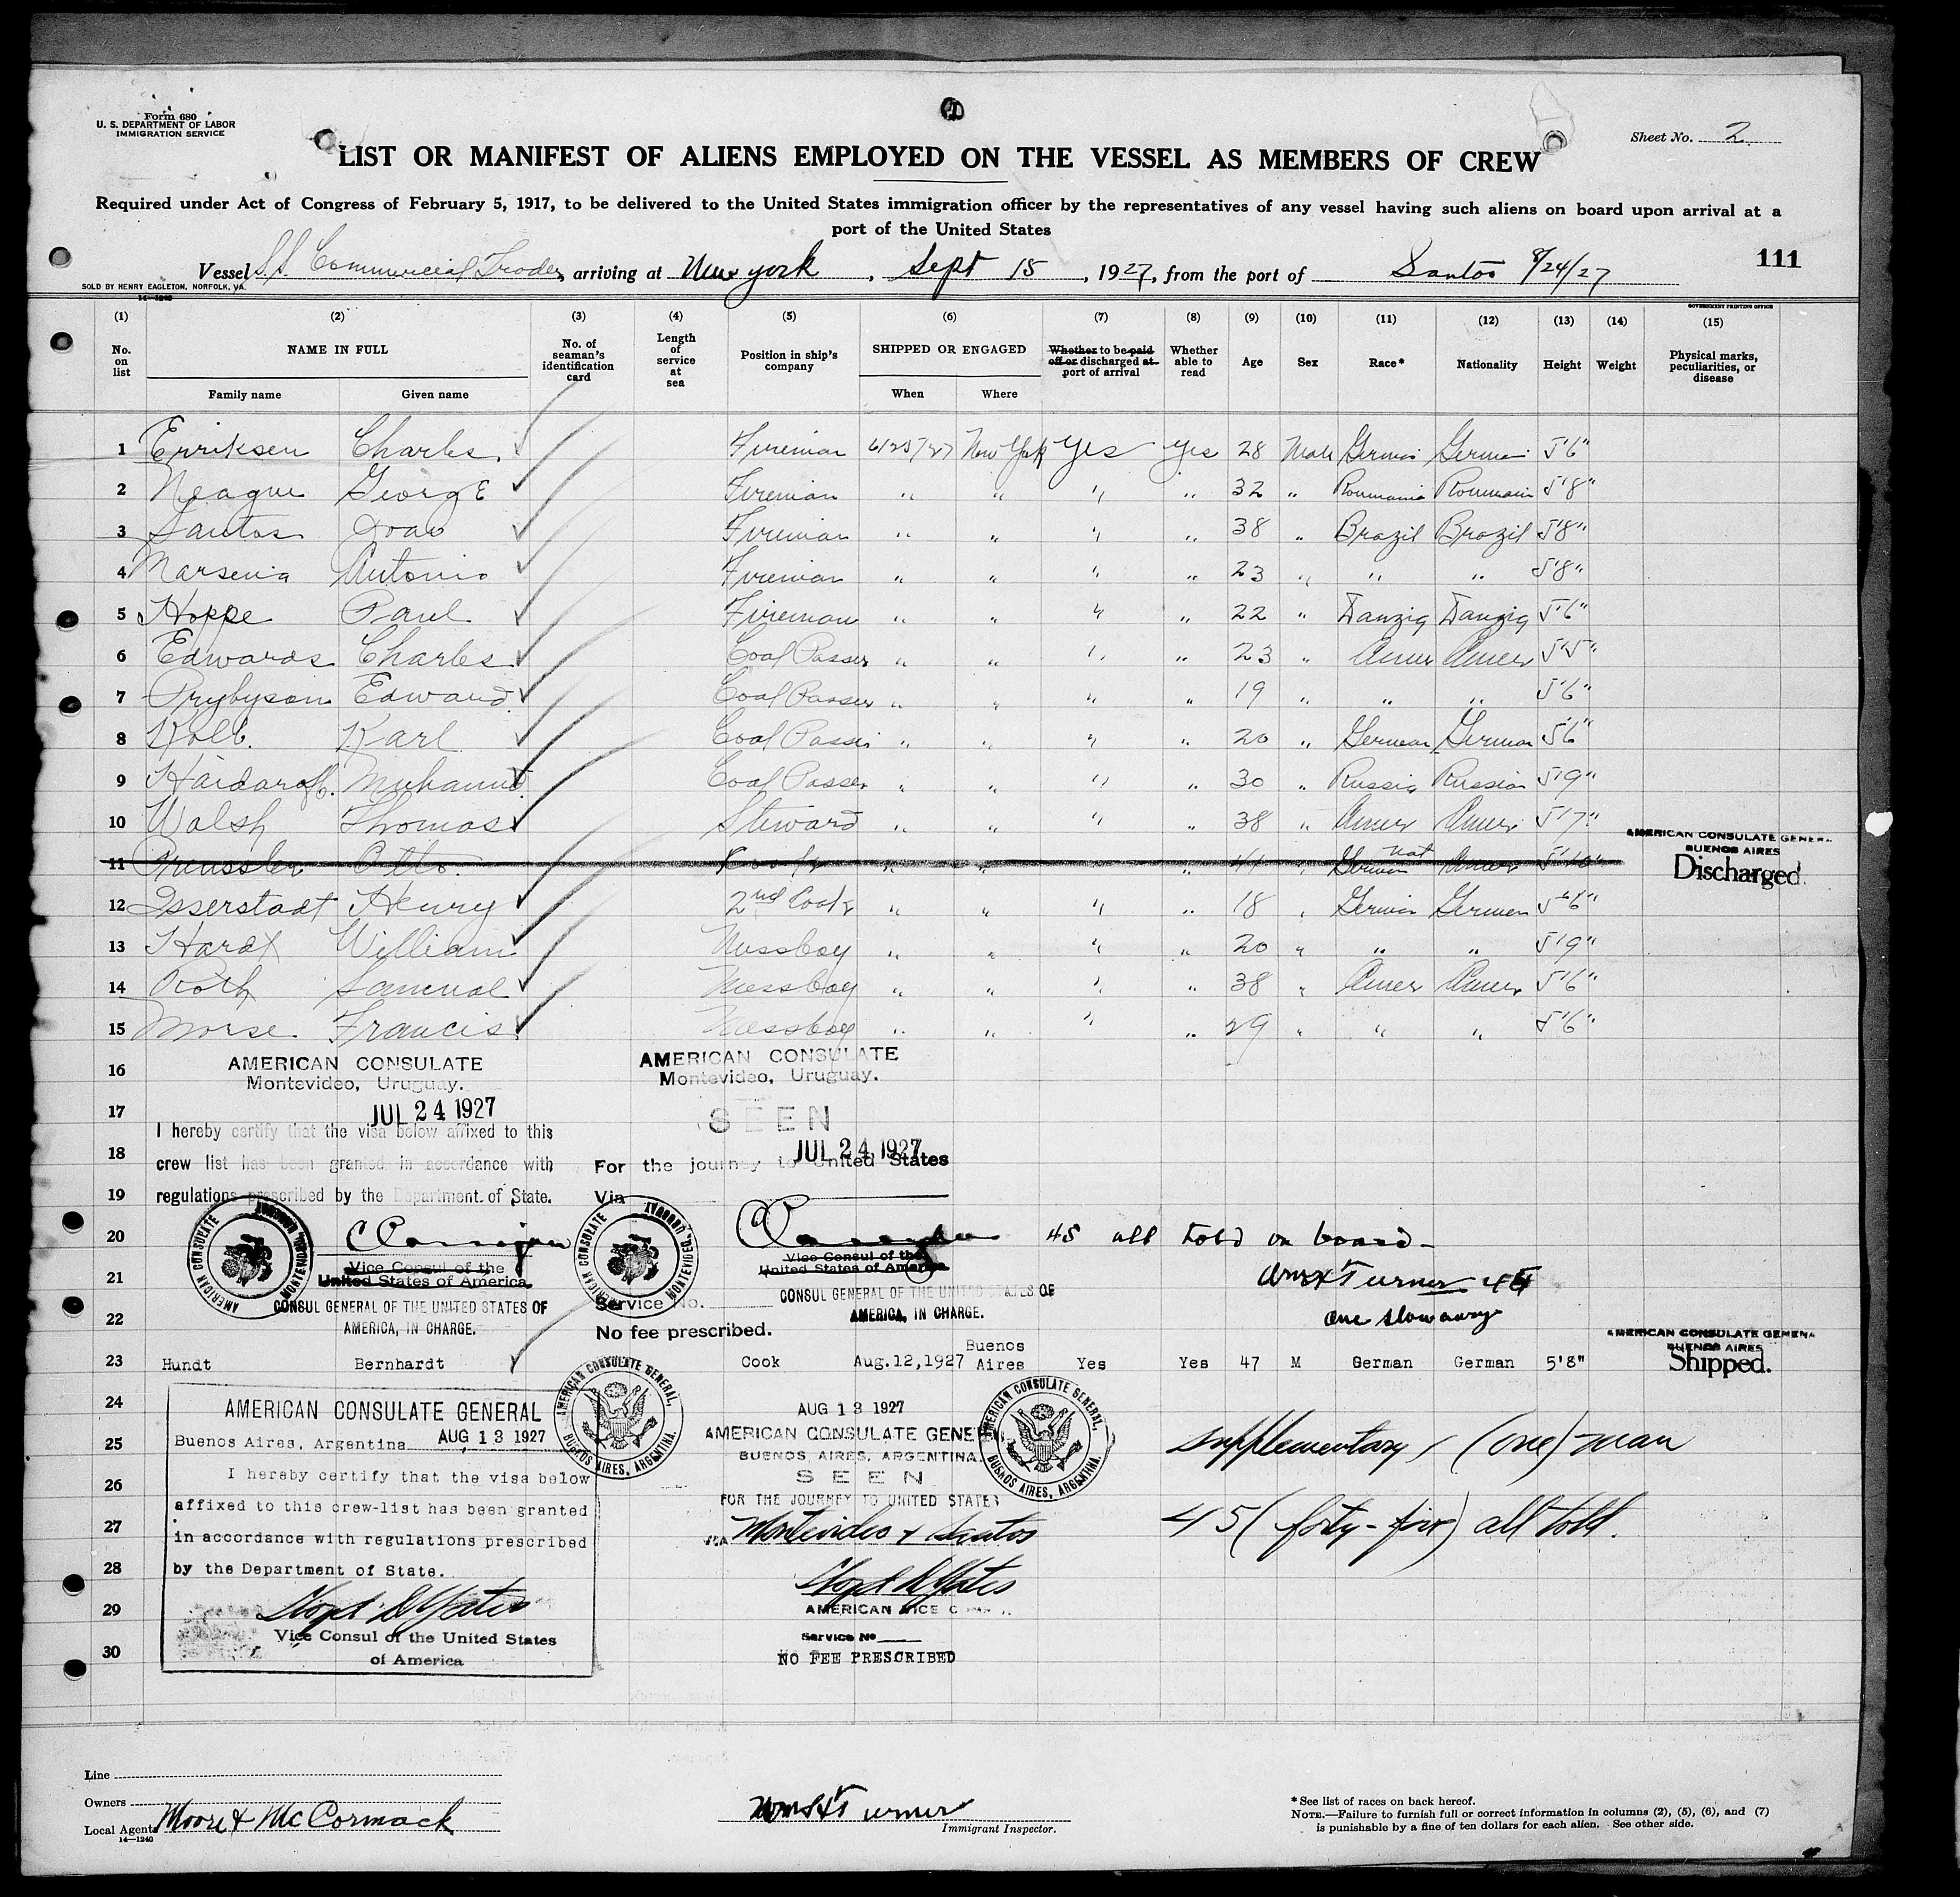 Form 680
U. S. DEPARTMENT OF LABOR
IMMIGRATION SERVICE
Sheet No. 2
LIST OR MANIFEST OF ALIENS EMPLOYED ON THE VESSEL AS MEMBERS OF CREW
Required under Act of Congress of February 5, 1917, to be delivered to the United States immigration officer by the representatives of any vessel having such aliens on board upon arrival at a
port of the United States
111
Vessel S.S. Commercial Trader, arriving at New York, Sept 15, 1927, from the port of Santos 8/24/27
SOLD BY HENRY EAGLETON, NORFOLK, VA.
14—1240
GOVERNMENT PRINTING OFFICE
(1) (2) (3) (4) (5) (6) (7) (8) (9) (10) (11) (12) (13) (14) (15)
No. on list NAME IN FULL No. of seaman's identification card Length of service at sea Position in ship's company SHIPPED OR ENGAGED Whether to be paid off or discharged at port of arrival Whether able to read Age Sex Race* Nationality Height Weight Physical marks, peculiarities, or disease
Family name Given name When Where
1 Erriksen Charles Fireman 6/25/27 New York Yes Yes 28 Male German German 5'6"
2 Neague George Fireman " " " " 32 " Roumania Roumain 5'8"
3 Santos Joao Fireman " " " " 38 " Brazil Brazil 5'8"
4 Marsenia Antonio Fireman " " " " 23 " " " 5'8"
5 Hoppe Paul Fireman " " " " 22 " Danzig Danzig 5'6"
6 Edwards Charles Coal Passer " " " " 23 " Amer Amer 5'5"
7 Prybyson Edward Coal Passer " " " " 19 " " " 5'6"
8 Kolb. Karl Coal Passer " " " " 20 " German German 5'6"
9 Haidaroff. Muhamed Coal Passer " " " " 30 " Russia Russian 5'9"
10 Walsh Thomas Steward " " " " 38 " Amer Amer 5'7"
AMERICAN CONSULATE GENERAL
BUENOS AIRES
Discharged.
11 Preussler Otto. Cook " " " 41 " German nat Amer 5'10"
12 Isserstadt Henry 2nd Cook " " " " 18 " German German 5'6"
13 Hardt William Messboy " " " " 20 " " " 5'9"
14 Roth Samuel Messboy " " " " 38 " Amer Amer 5'6"
15 Morse Francis Messboy " " " " 29 " " " 5'6"
16 AMERICAN CONSULATE
Montevideo, Uruguay.
AMERICAN CONSULATE
Montevideo, Uruguay.
17 JUL 24 1927
SEEN
I hereby certify that the visa below affixed to this
JUL 24 1927
18 crew list has been granted in accordance with
For the journey to United States
19 regulations prescribed by the Department of State.
Via
AMERICAN CONSULATE MONTEVIDEO, URUGUAY
AMERICAN CONSULATE MONTEVIDEO, URUGUAY
20 45 all told on board -
Vice Consul of the
United States of America
Vice Consul of the
United States of America
21 Wm H Turner 45
CONSUL GENERAL OF THE UNITED STATES OF
AMERICA, IN CHARGE.
Service No.
CONSUL GENERAL OF THE UNITED STATES OF
AMERICA, IN CHARGE.
22 one stowaway
No fee prescribed.
AMERICAN CONSULATE GENERAL
BUENOS AIRES
Shipped.
23 Hundt Bernhardt Cook Aug.12,1927 Buenos Aires Yes Yes 47 M German German 5'8"
AMERICAN CONSULATE GENERAL, BUENOS AIRES, ARGENTINA.
AMERICAN CONSULATE GENERAL, BUENOS AIRES, ARGENTINA.
24 AMERICAN CONSULATE GENERAL
AUG 13 1927
25 Buenos Aires, Argentina AUG 13 1927
AMERICAN CONSULATE GENERAL
BUENOS AIRES, ARGENTINA.
supplementary 1 (one) man
26 I hereby certify that the visa below
SEEN
affixed to this crew-list has been granted
FOR THE JOURNEY TO UNITED STATES
27 in accordance with regulations prescribed
VIA Montevideo & Santos
45 (forty-five) all told.
28 by the Department of State.
29 Lloyd D Yates
Lloyd D Yates
AMERICAN VICE CONSUL
Vice Consul of the United States
of America
30 Service No
NO FEE PRESCRIBED
Line
Owners
Local Agents Moore & McCormack
14—1240
Wm H Turner
Immigrant Inspector.
* See list of races on back hereof.
NOTE.—Failure to furnish full or correct information in columns (2), (5), (6), and (7)
is punishable by a fine of ten dollars for each alien. See other side.